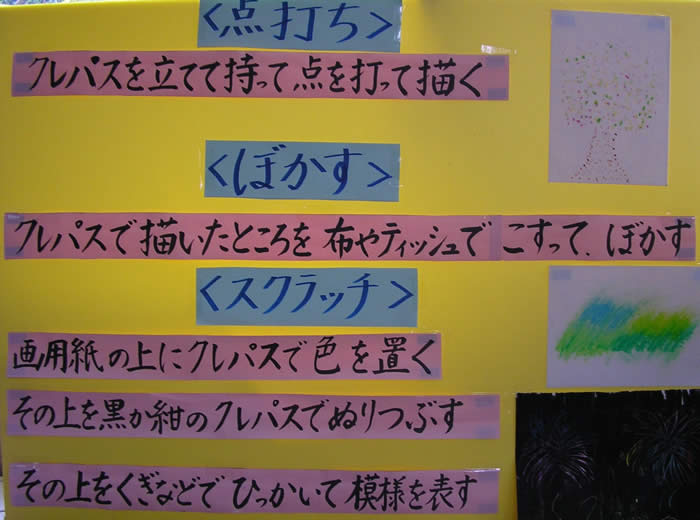 ＜点打ち＞
クレパスを立てて持って、点を打って描く
＜ぼかす＞
クレパスで描いたところを布やティッシュでこすって、ぼかす
＜スクラッチ＞
画用紙の上にクレパスで色を置く
その上を黒か紺のクレパスでぬりつぶす
その上をくぎなどでひっかいて模様を表す